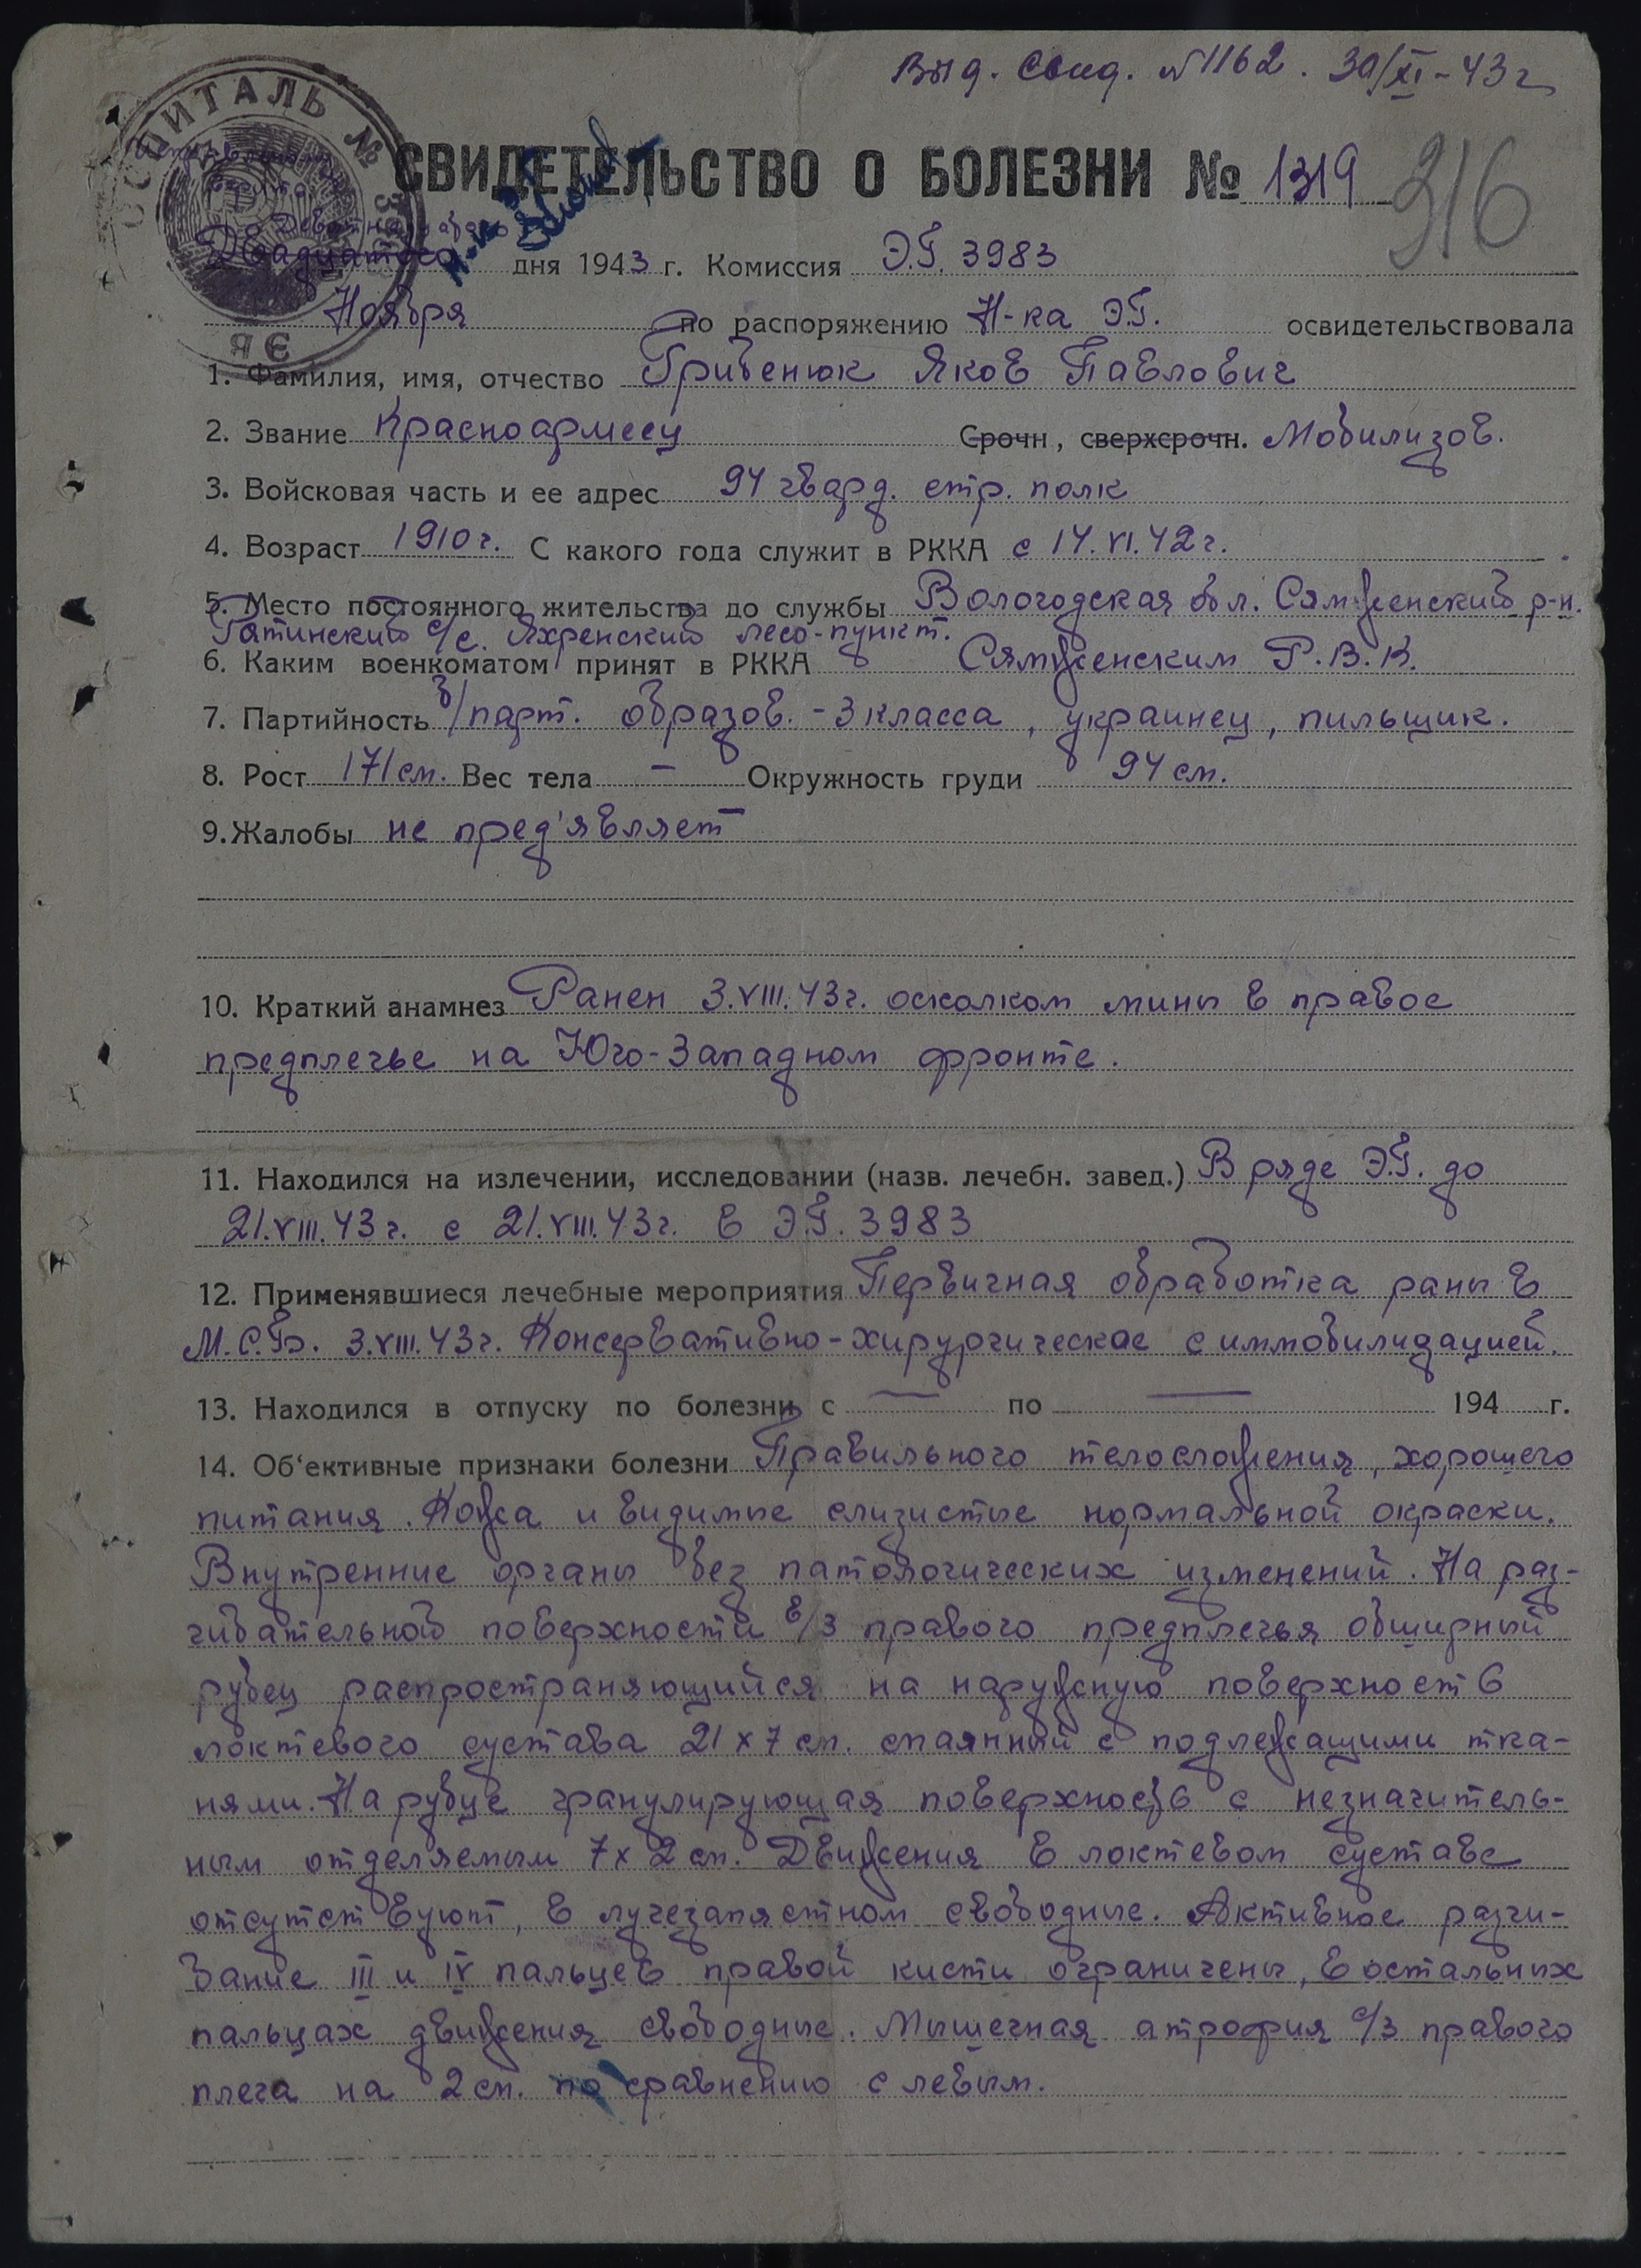 Выд. свид. №1162. 30/XI-43г
СВИДЕТЕЛЬСТВО О БОЛЕЗНИ № 1319
316
ГОСПИТАЛЬ №
Двадцатого дня 1943 г. Комиссия Э.Г. 3983
Ноября по распоряжению Н-ка Э.Г. освидетельствовала
1. Фамилия, имя, отчество Грибенюк Яков Павлович
2. Звание Красноармеец Срочн, сверхсрочн. Мобилизов.
3. Войсковая часть и ее адрес 94 гвард. стр. полк
4. Возраст 1910г. С какого года служит в РККА с 14.VI.42г.
5. Место постоянного жительства до службы Вологодская обл. Сямженский р-н.
с/с. Яхренский лесо-пункт.
6. Каким военкоматом принят в РККА Сямженским Р.В.К.
7. Партийность б/парт. образов. - 3 класса, украинец, пильщик.
8. Рост 171см. Вес тела — Окружность груди 94 см.
9. Жалобы не пред'являет
10. Краткий анамнез Ранен 3.VIII.43г. осколком мины в правое
предплечье на Юго-Западном фронте.
11. Находился на излечении, исследовании (назв. лечебн. завед.) В ряде Э.Г. до
21.VIII.43г. с 21.VIII.43г. в Э.Г. 3983
12. Применявшиеся лечебные мероприятия Первичная обработка раны в
М.С.Б. 3.VIII.43г. Консервативно-хирургическое с иммобилизацией.
13. Находился в отпуску по болезни с — по — 194 г.
14. Об'ективные признаки болезни Правильного телосложения, хорошего
питания. Кожа и видимые слизистые нормальной окраски.
Внутренние органы без патологических изменений. На раз-
гибательной поверхности в/3 правого предплечья обширный
рубец распространяющийся на наружную поверхность
локтевого сустава 21х7 см. спаянный с подлежащими тка-
нями. На рубце гранулирующая поверхность с незначитель-
ным отделяемым 7х2 см. Движения в локтевом суставе
отсутствуют, в лучезапястном свободные. Активное разги-
бание III и IV пальцев правой кисти ограничены, в остальных
пальцах движения свободные. Мышечная атрофия с/3 правого
плеча на 2 см. по сравнению с левым.